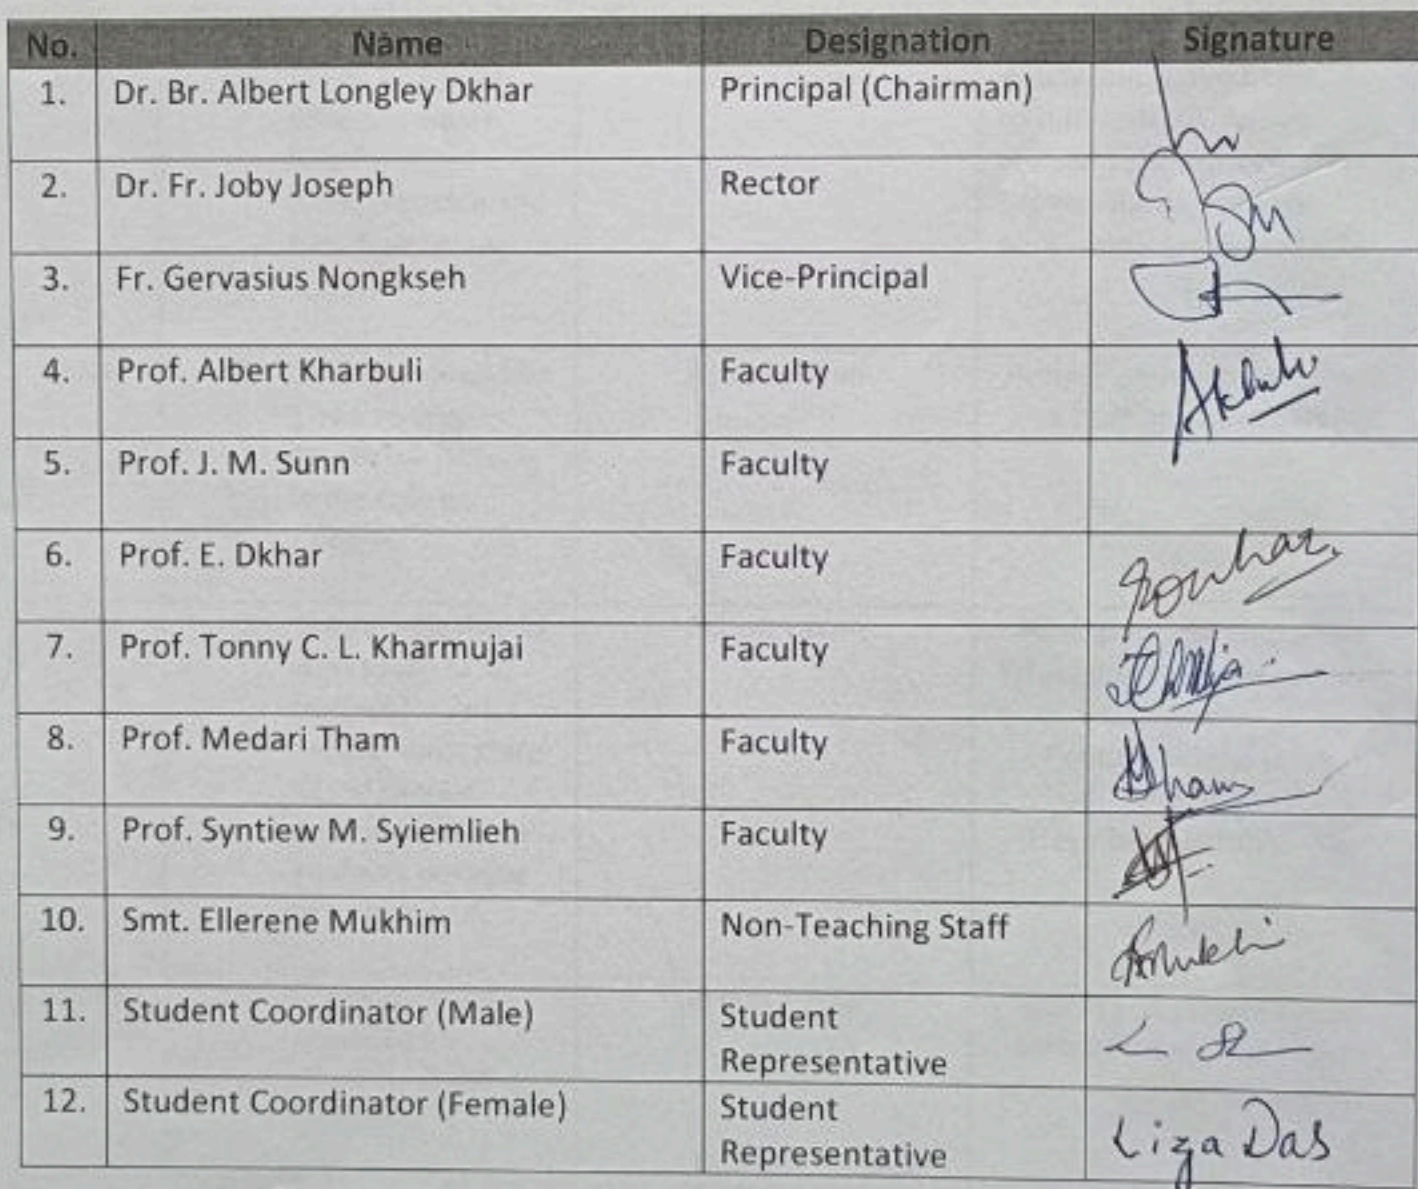 No. Name Designation Signature
1. Dr. Br. Albert Longley Dkhar Principal (Chairman)
2. Dr. Fr. Joby Joseph Rector
3. Fr. Gervasius Nongkseh Vice-Principal
4. Prof. Albert Kharbuli Faculty
5. Prof. J. M. Sunn Faculty
6. Prof. E. Dkhar Faculty
7. Prof. Tonny C. L. Kharmujai Faculty
8. Prof. Medari Tham Faculty
9. Prof. Syntiew M. Syiemlieh Faculty
10. Smt. Ellerene Mukhim Non-Teaching Staff
11. Student Coordinator (Male) Student
Representative
12. Student Coordinator (Female) Student
Representative Liza Das